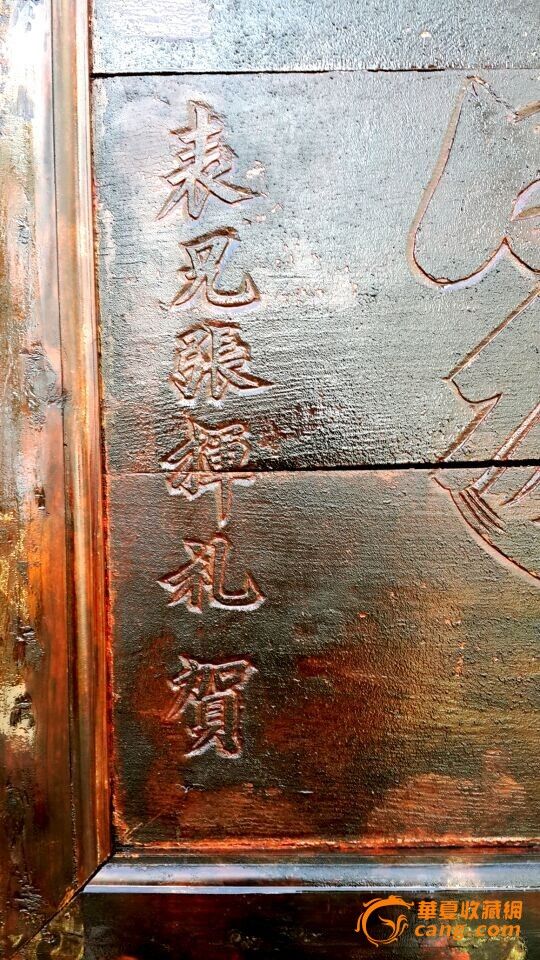 表兄張揮札賀
華夏收藏網
cang.com